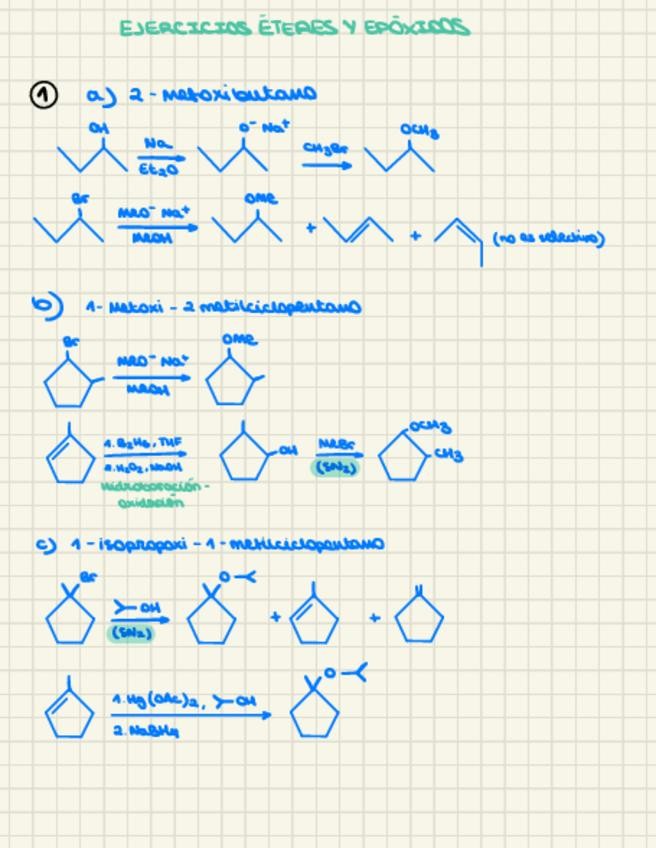 EJERCICIOS ÉTERES Y EPÓXIDOS
① a) 2-metoxibutano
OH Na Et₂O O⁻ Na⁺ CH₃Br OCH₃
Br MeO⁻ Na⁺ MeOH OMe + + (no es selectivo)
b) 1-Metoxi-2 metilciclopentano
Br MeO⁻ Na⁺ MeOH OMe
1. B₂H₆, THF 2. H₂O₂, NaOH OH MeBr (SN₂) OCH₃ CH₃
hidroboración-
oxidación
c) 1-isopropoxi-1-metilciclopentano
Br OH (SN₂) O + +
1. Hg(OAc)₂, OH 2. NaBH₄ O